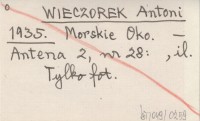 WIECZOREK Antoni
1935. Morskie Oko. —
Antena 2, nr 28: , il.
Tylko fot.